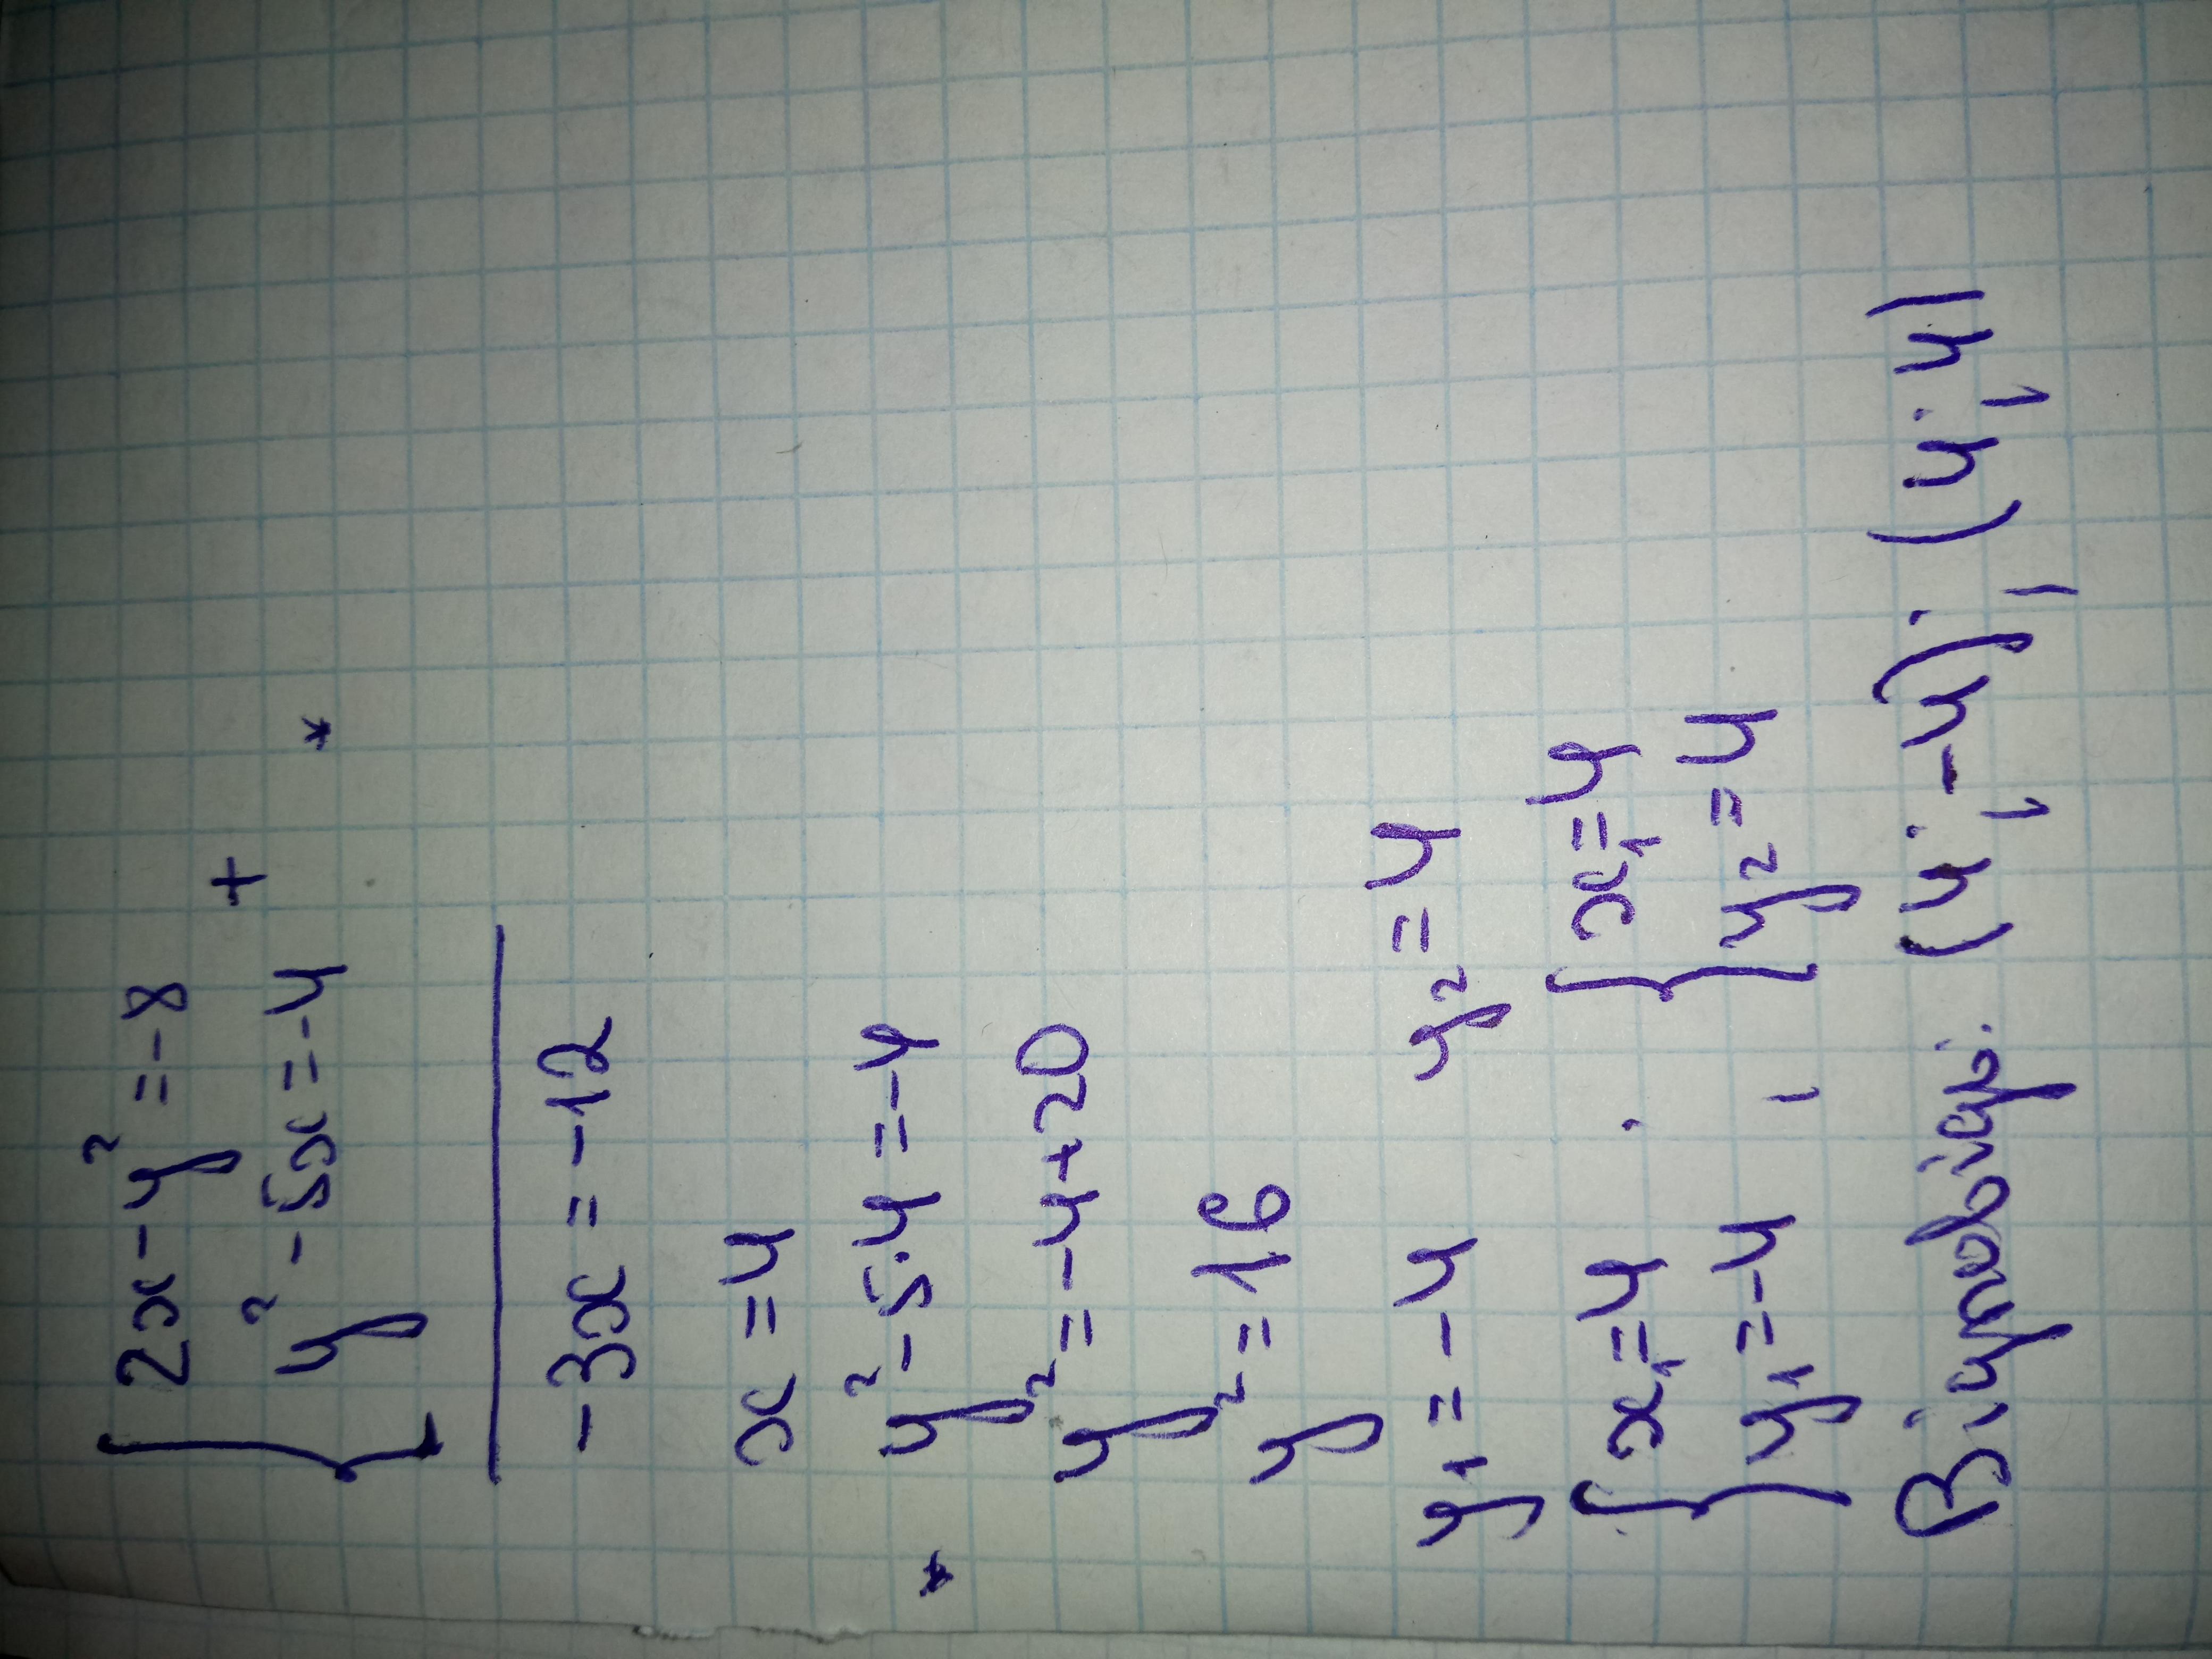 { 2x - y² = -8
+
{ y² - 5x = -4 *
-3x = -12
x = 4
* y² - 5·4 = -4
y² = -4 + 20
y² = 16
y₁ = -4 y₂ = 4
{ x₁ = 4 ; { x₁ = 4
{ y₁ = -4 { y₂ = 4
Відповідь: (4; -4); (4; 4)